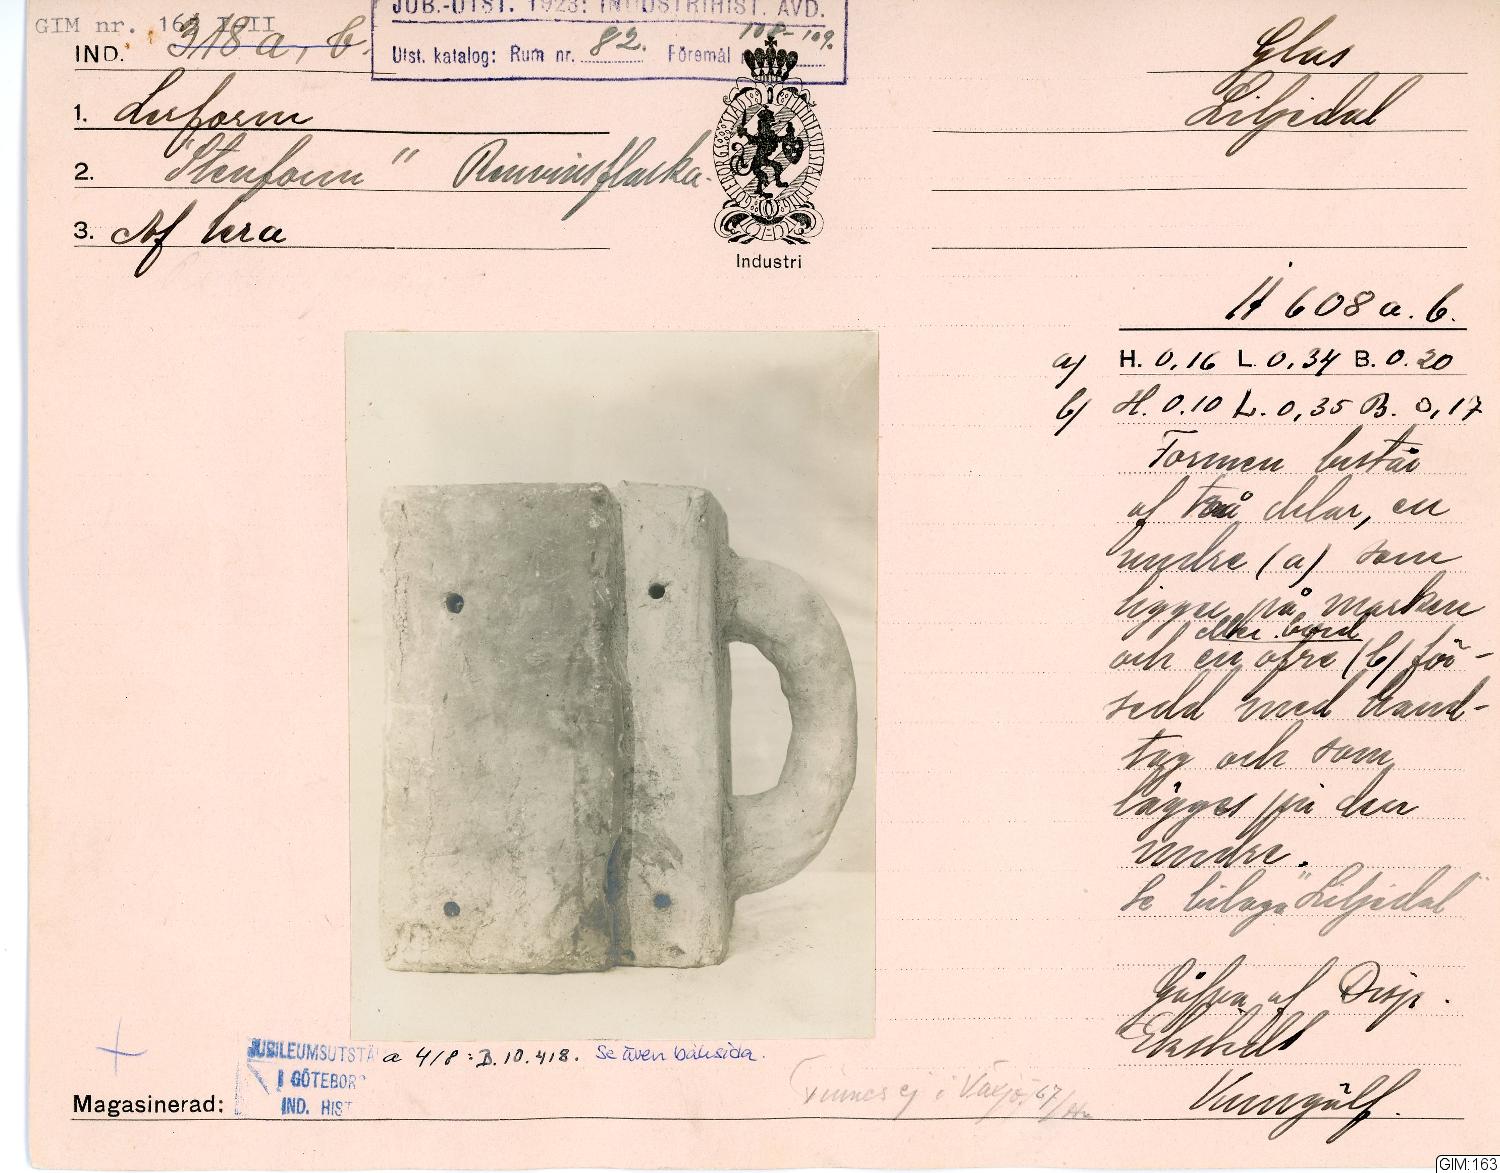 GIM nr. 163 I-II
IND. 318 a, b.
JUB.-UTST. 1923: INDUSTRIHIST. AVD.
Utst. katalog: Rum nr. 82. Föremål 108-109.
Glas
Liljedal
1. Lerform
2. "Stenform" Renvinsflaska.
3. Af lera
GÖTEBORGS STADS MINNESUTSTÄLLNING
Industri
608 a. b.
a) H. 0,16 L. 0,34 B. 0.20
b) H. 0.10 L. 0,35 B. 0,17
Formen består
af två delar, en
undre (a) som
ligger på marken
eller bord
och en öfre (b) för-
sedd med hand-
tag och som
lägges på den
undre.
Se bilaga "Liljedal"
Gåfva af Disp.
Ekstedt
Kungälf.
JUBILEUMSUTSTÄ
I GÖTEBOR
IND. HIST
a 418: B.10.418. Se även baksida.
Finnes ej i Växjö. /67
Magasinerad:
GIM:163